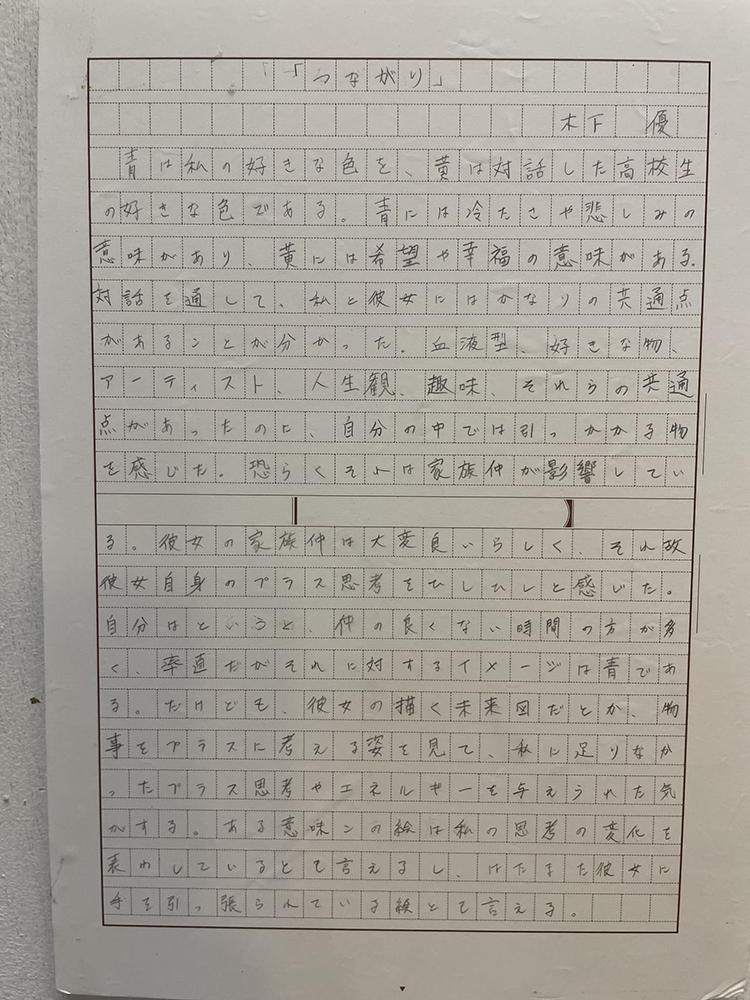 「「つながり」
木下　優
　青は私の好きな色を、黄は対話した高校生
の好きな色である。青には冷たさや悲しみの
意味があり、黄には希望や幸福の意味がある。
対話を通して、私と彼女にはかなりの共通点
があることが分かった。血液型、好きな物、
アーティスト、人生観、趣味、それらの共通
点があったのに、自分の中では引っかかる物
を感じた。恐らくそれは家族仲が影響してい
る。彼女の家族仲は大変良いらしく、それ故
彼女自身のプラス思考をひしひしと感じた。
自分はというと、仲の良くない時間の方が多
く、率直だがそれに対するイメージは青であ
る。だけども、彼女の描く未来図だとか、物
事をプラスに考える姿を見て、私に足りなか
ったプラス思考やエネルギーを与えられた気
がする。ある意味この絵は私の思考の変化を
表わしているとて言えるし、はたまた彼女に
手を引っ張られている絵とて言える。